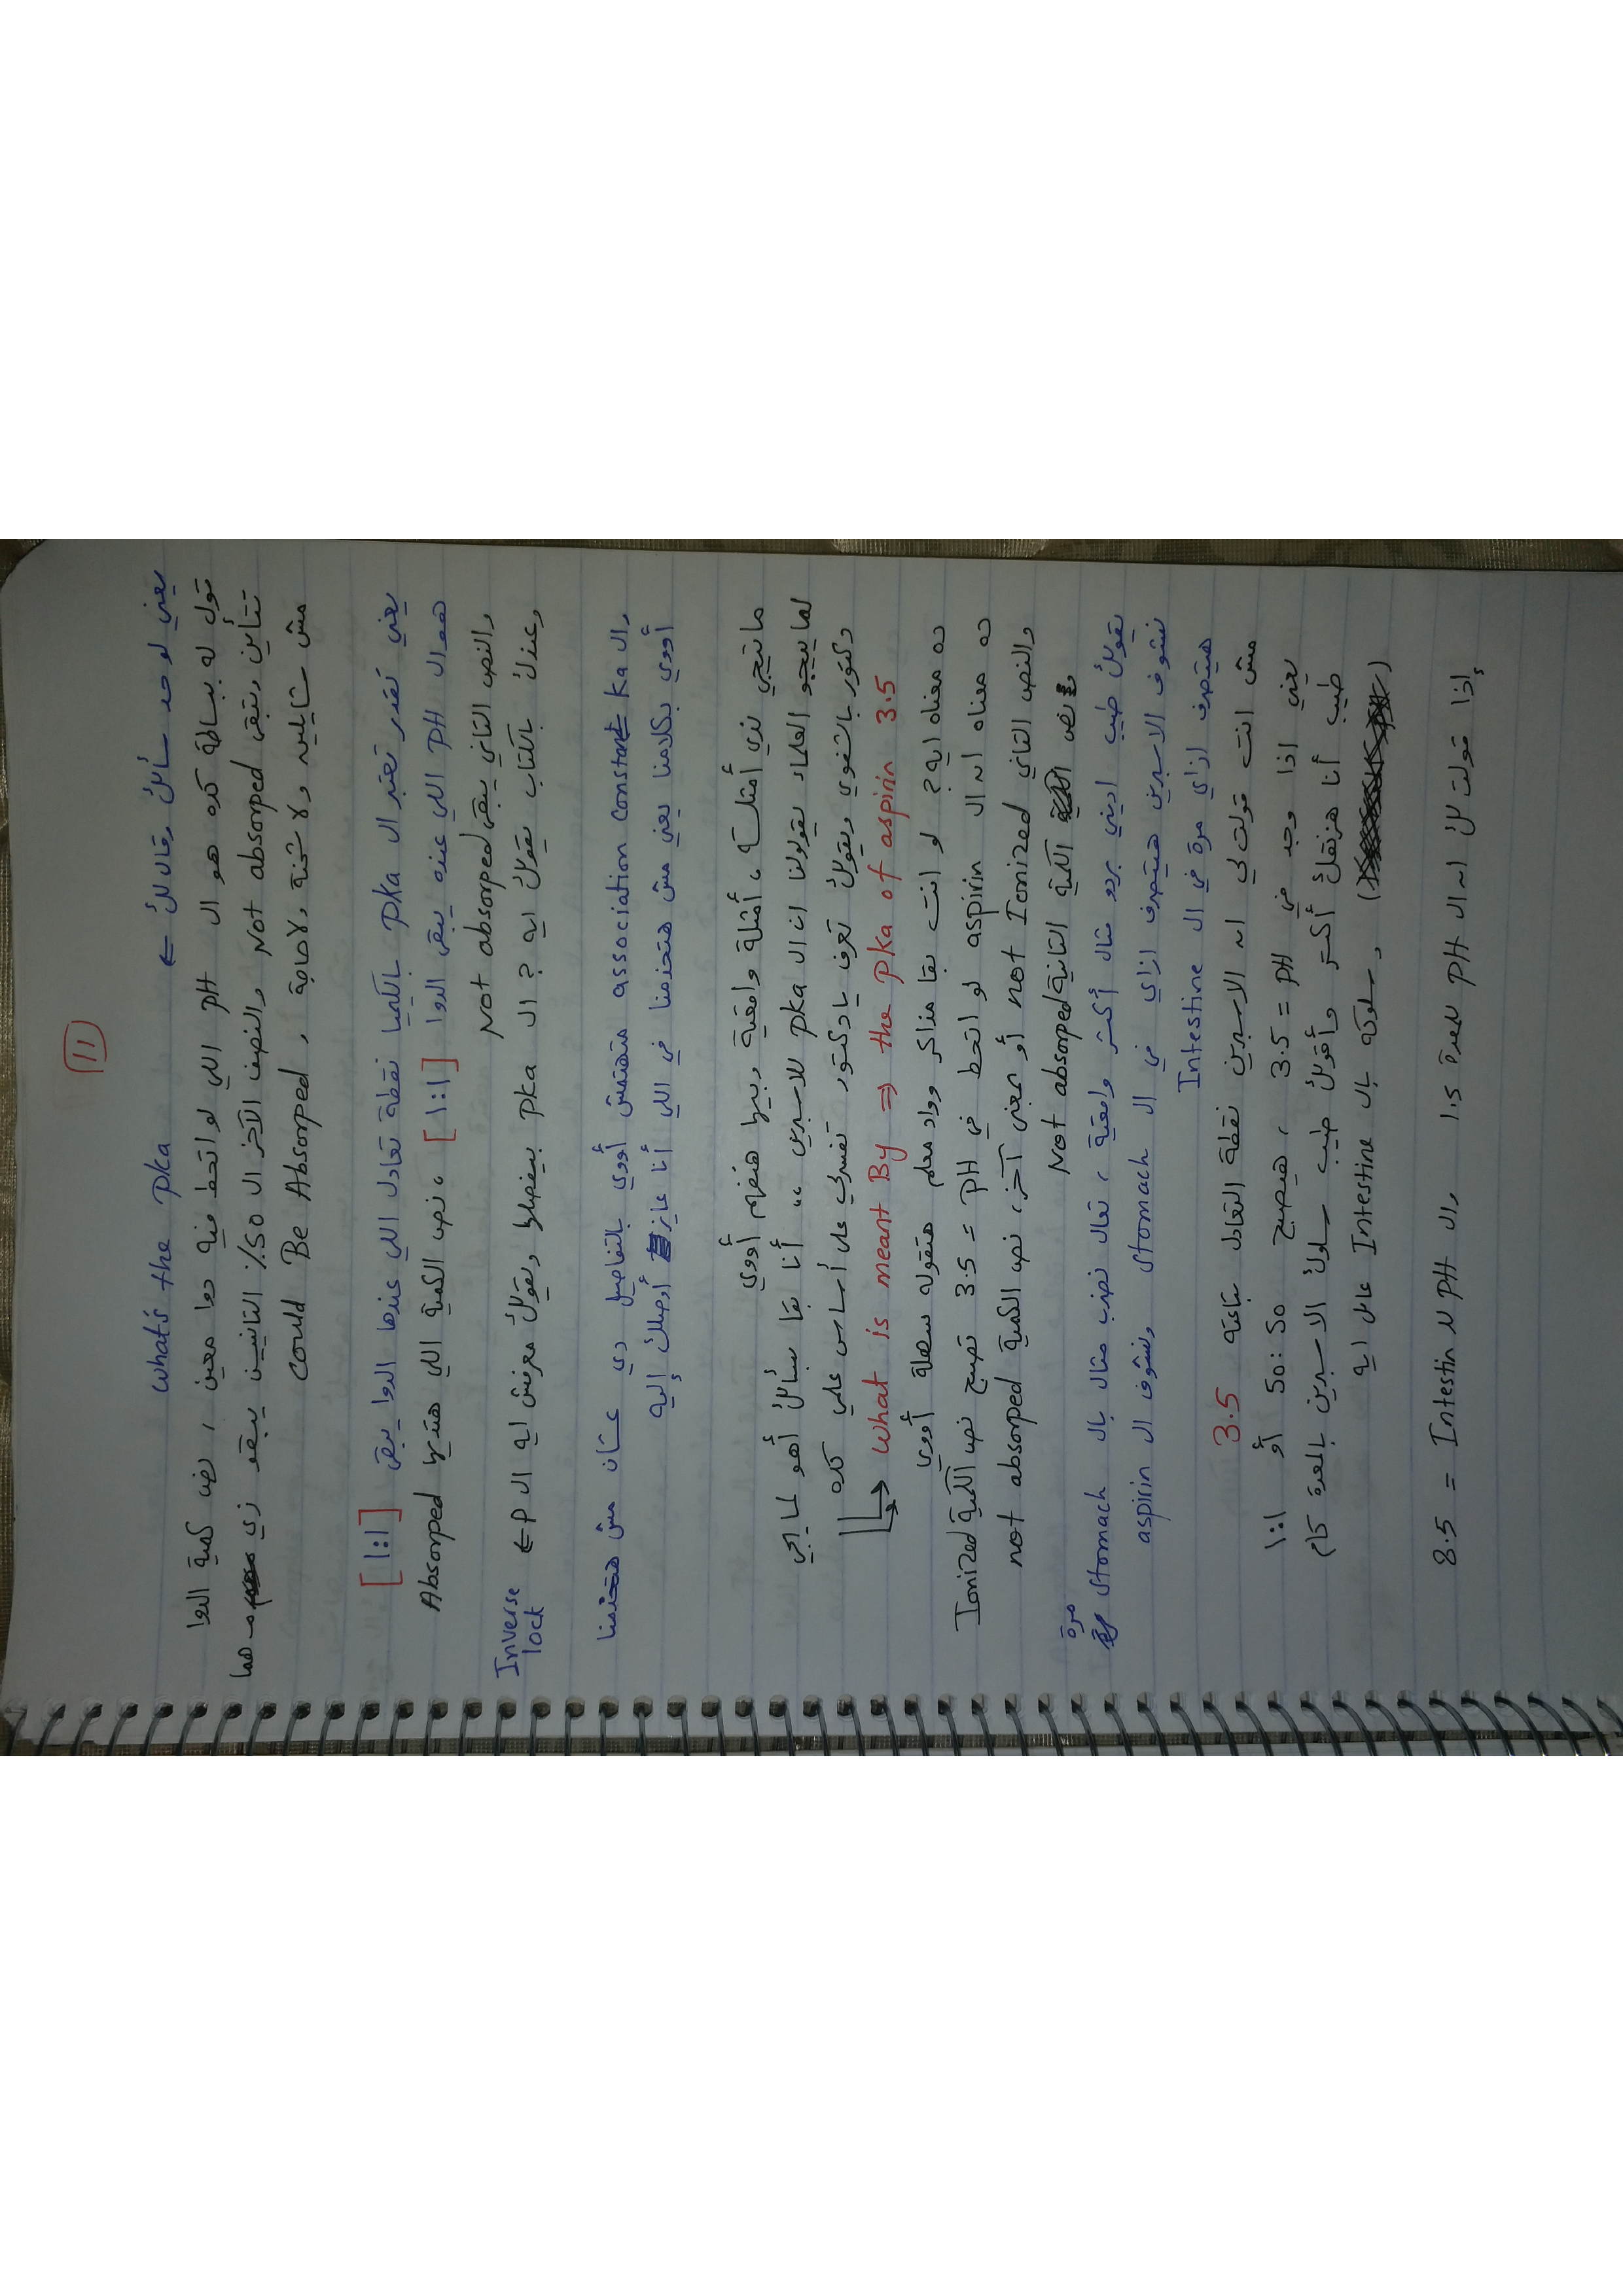 11
يعني لو حد سألك وقالك ← what's the pka
قول له ببساطة كده هو ال pH اللي لو اتحط فيه دوا معين ، نص كمية الدوا
تتأين وتبقى Not absorped والنصف الآخر ال 50% التانيين يبقو زي هما
مش شايلين ولا شحنة ولا حاجة , could Be Absorped
يعني تقدر تعتبر ال pka بالكيميا نقطة تعادل اللي عندها الدوا يبقى [1:1]
هو ال pH اللي عنده يبقى الدوا [1:1] ، نص الكمية اللي هتديها Absorped
والنص التاني يبقى Not absorped
وعندك بالكتاب يقولك ايه ? ال pka بيفصلها ويقولك معرفش ايه ال P ← Inverse lock
وال ka association constant متهتمش أووي بالتفاصيل دي عشان مش هتخدمنا
أووي بكلامنا يعني مش هتخدمنا في اللي أنا عايز أوصلك إليه
ماتيجي ندي أمثلة ، أمثلة واقعية وبيها هنفهم أووي
لما ييجو العلماء يقولولنا ان ال pka للاسبرين ،، أنا بقا بسألك أهو لما يجي
دكتور بالشفوي ويقولك تعرف يا دكتور تفسرلي على أساس علمي كده
↳ what is meant By ⇒ the pka of aspirin 3.5
ده معناه ايه ? لو انت بقا مذاكر وواد معلم هتقوله سهلة أووي
ده معناه ان ال aspirin لو اتحط في pH = 3.5 تصبح نص الكمية Ionized
والنص التاني not Ionized أو بمعنى آخر ، نص الكمية not absorped
ونص الكمية التانية Not absorped
يقولك طيب اديني بردو مثال أكتر واقعية ، تعال نضرب مثال بال stomach مرة
نشوف الاسبرين هيتصرف ازاي في ال stomach ونشوف ال aspirin
هيتصرف ازاي مرة في ال Intestine
مش انت قولت لي ان الاسبرين نقطة التعادل بتاعته 3.5
يعني اذا وجد في pH = 3.5 ، هيصبح 50:50 أو 1:1
طيب أنا هزنقك أكتر وأقولك طيب سلوك الاسبرين بالمعدة كام
, سلوكه بال Intestine عامل ايه
إذا قولت لك ان ال pH للمعدة 1.5 وال pH لل Intestin = 8.5